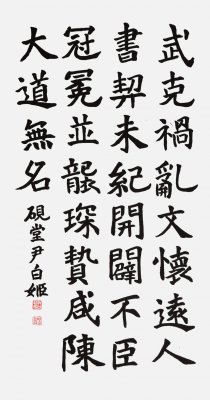 武克禍亂文懷遠人
書契未紀開闢不臣
冠冕並襲琛贄咸陳
大道無名
硯堂尹白姬